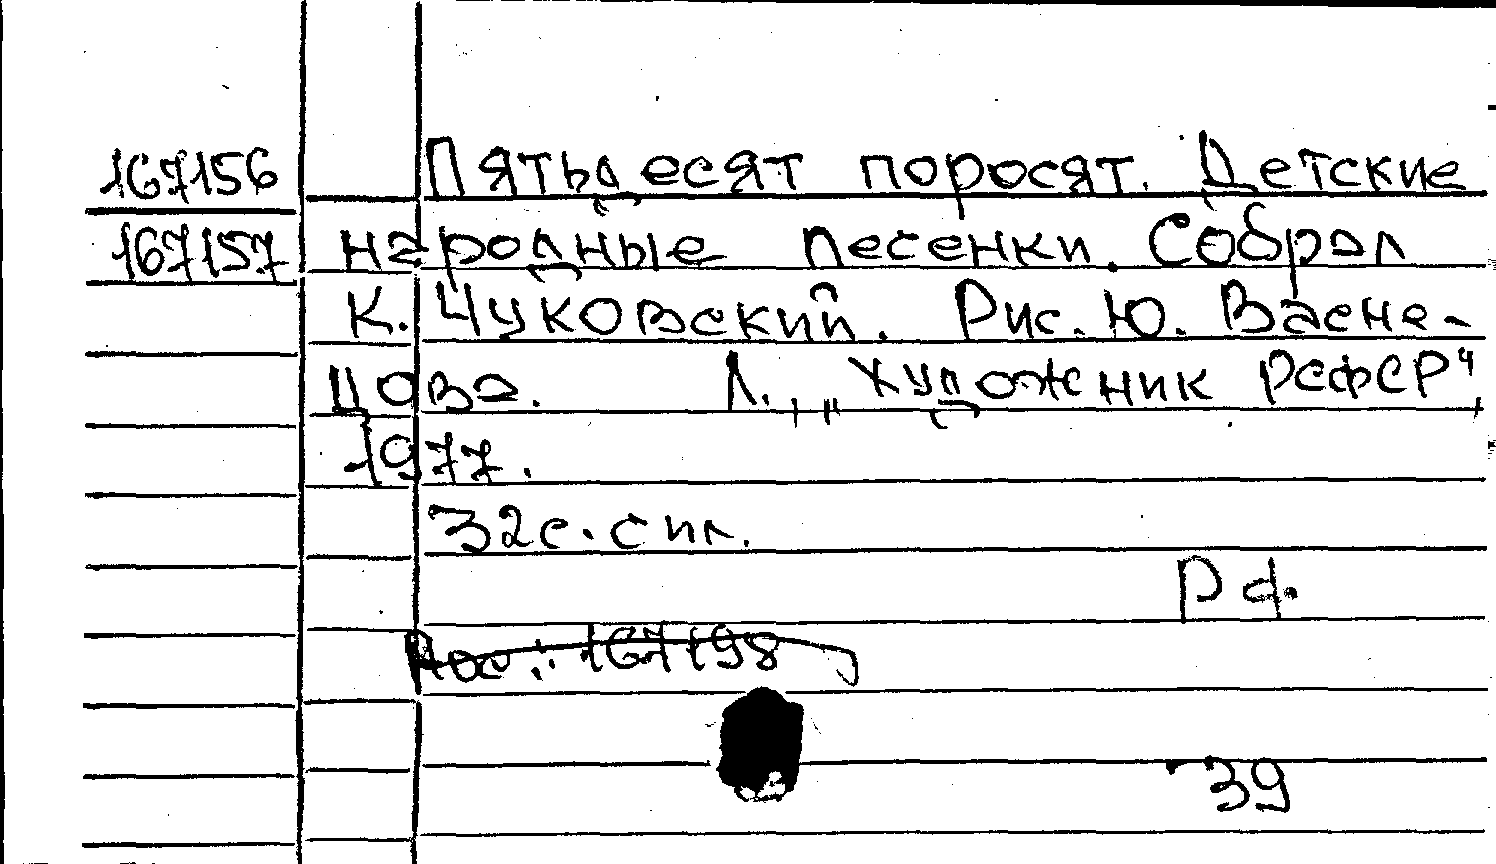 167156 Пятьдесят поросят. Детские
167157 народные песенки. Собрал
К. Чуковский. Рис. Ю. Васне-
цова. Л., „Художник РСФСР“,
1977.
32с. с ил.
Рф.
167198
39